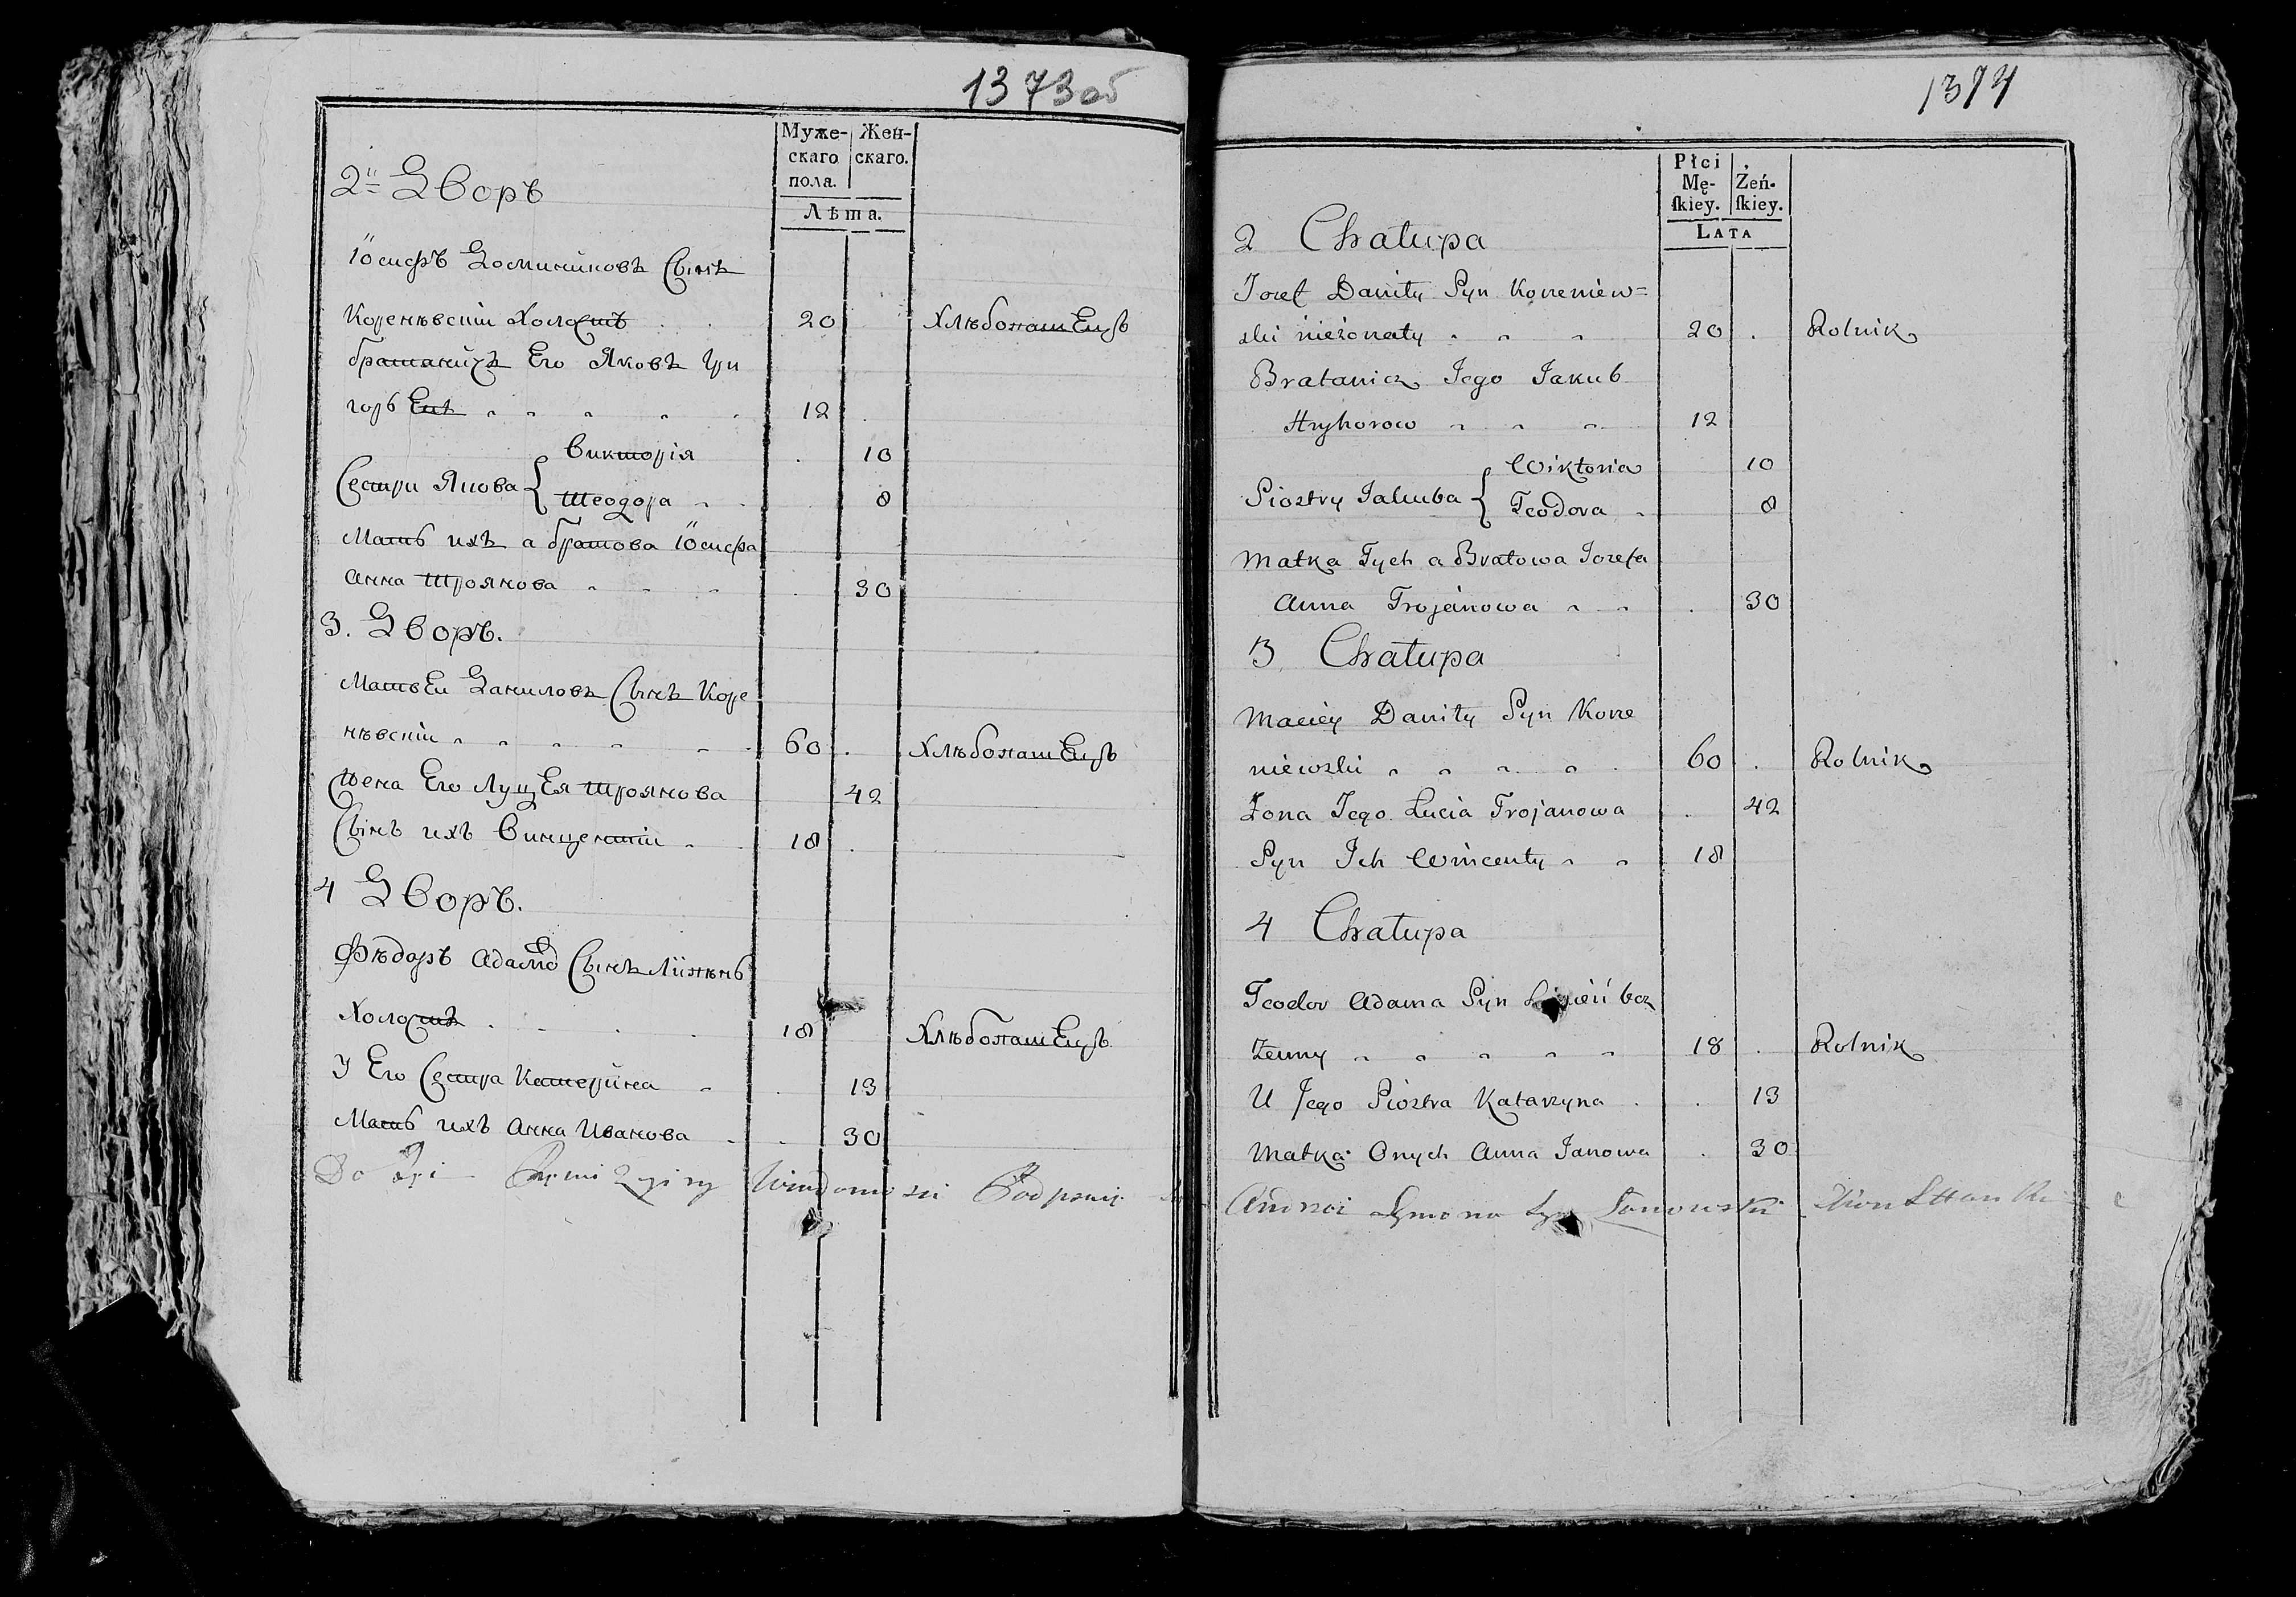 1373об
Муже- Жен-
скаго скаго.
пола.
Лѣта.
2й Дворъ
Іосифъ Доминиковъ Сынъ
Кореневскій Холостъ 20 Хлѣбопашецъ
братаничъ Его Яковъ Гри
горь Евъ 12
Сестри Якова { Викторія 10
Теодора 8
Мать ихъ а братова Іосифа
Анна Троянова 30
3. Дворъ.
Матвеи Даниловъ Сынъ Коре
нѣвскіи 60 Хлѣбопашецъ
Жена Его Луцея Троянова 42
Сынъ ихъ Винцентіи 18
4 Дворъ.
Фѣдоръ Адама Сынъ Липѣнь
Холостъ 18 Хлѣбопашецъ
У Его Сестра Катерина 13
Мать ихъ Анна Иванова 30
Do Podpisuię
1374
Płci
Mę- Żeń-
skiey. skiey.
LATA
2 Chałupa
Jozef Daniły Syn Korzeniew=
ski nieżonaty 20 Rolnik
Bratanicz Jego Jakub
Hryhorow 12
Siostry Jakuba { Wiktoria 10
Teodora 8
Matka Tych a Bratowa Jozefa
Anna Trojanowa 30
3 Chałupa
Maciey Daniły Syn Korze
niewski 60 Rolnik
Żona Jego Łucia Trojanowa 42
Syn Ich Wincenty 18
4 Chałupa
Teodor Adama Syn Lipień bez
żenny 18 Rolnik
U Jego Siostra Katarzyna 13
Matka Onych Anna Janowa 30
Andrzei Symona Syn